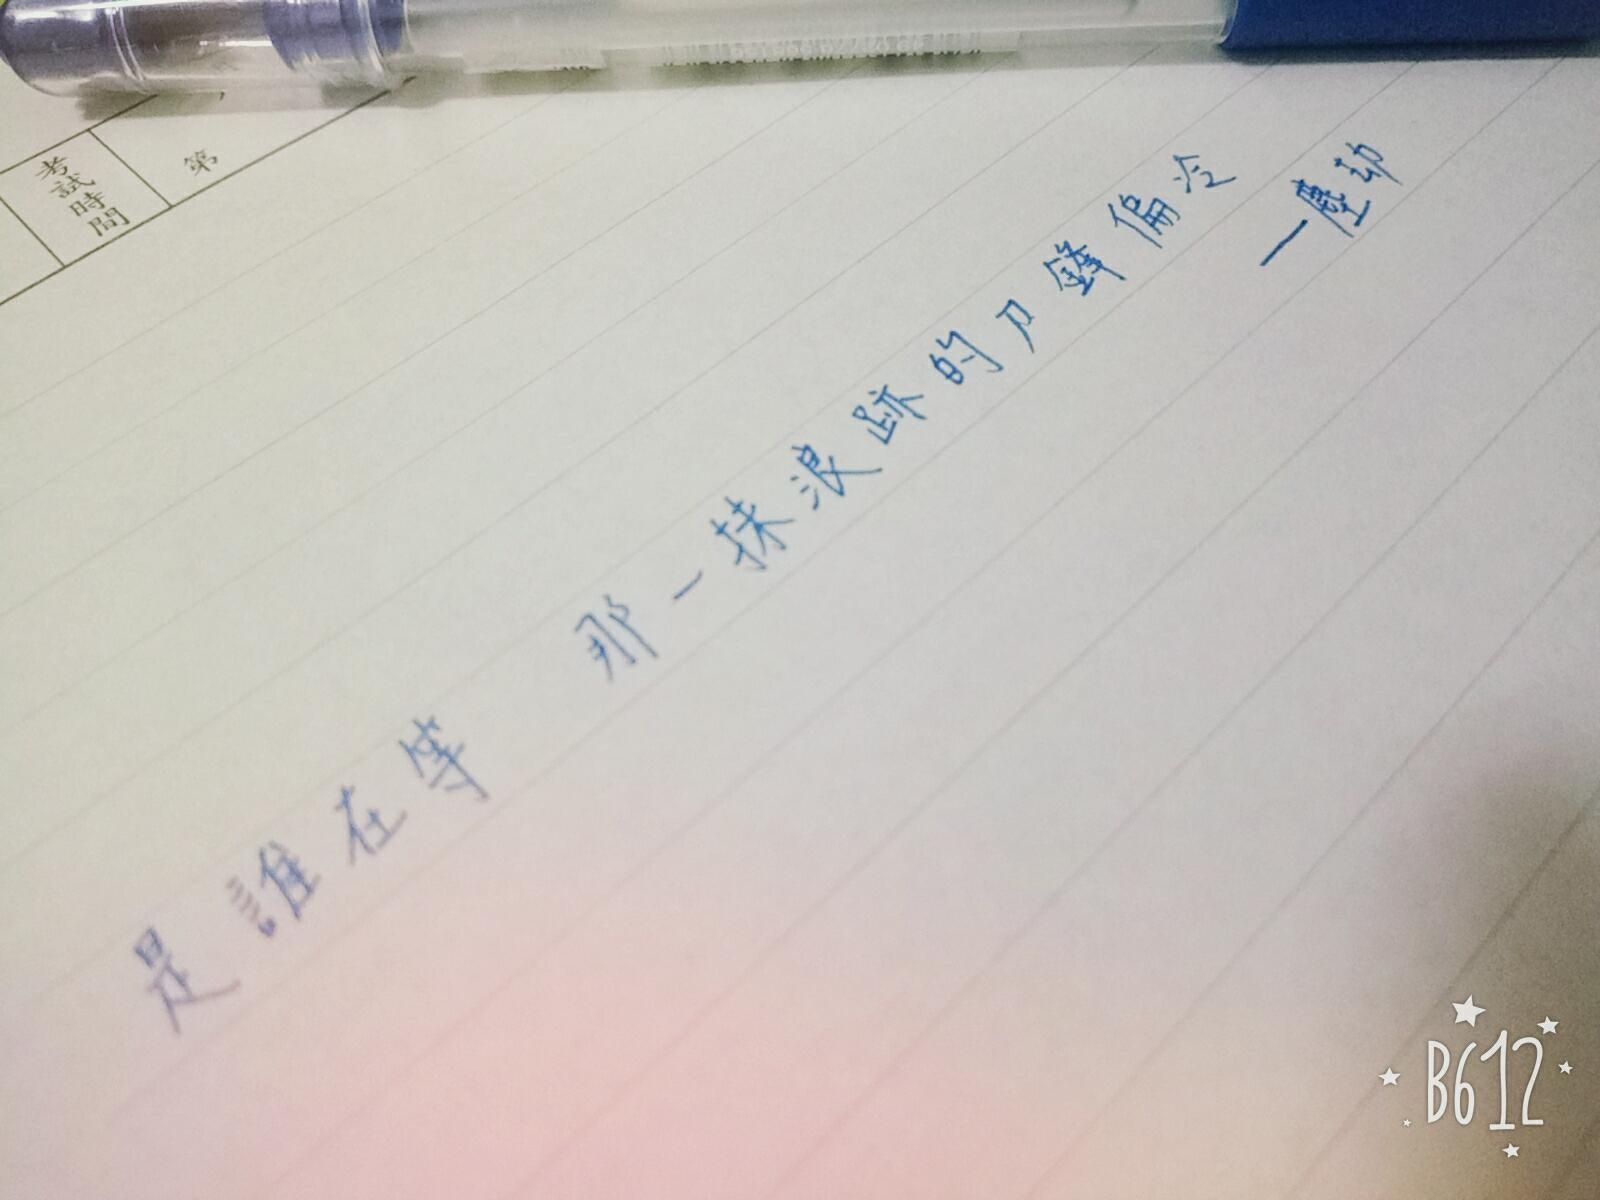 考試時間
第
是誰在等 那一抹浪跡的刃鋒偏冷
一塵劫
B612